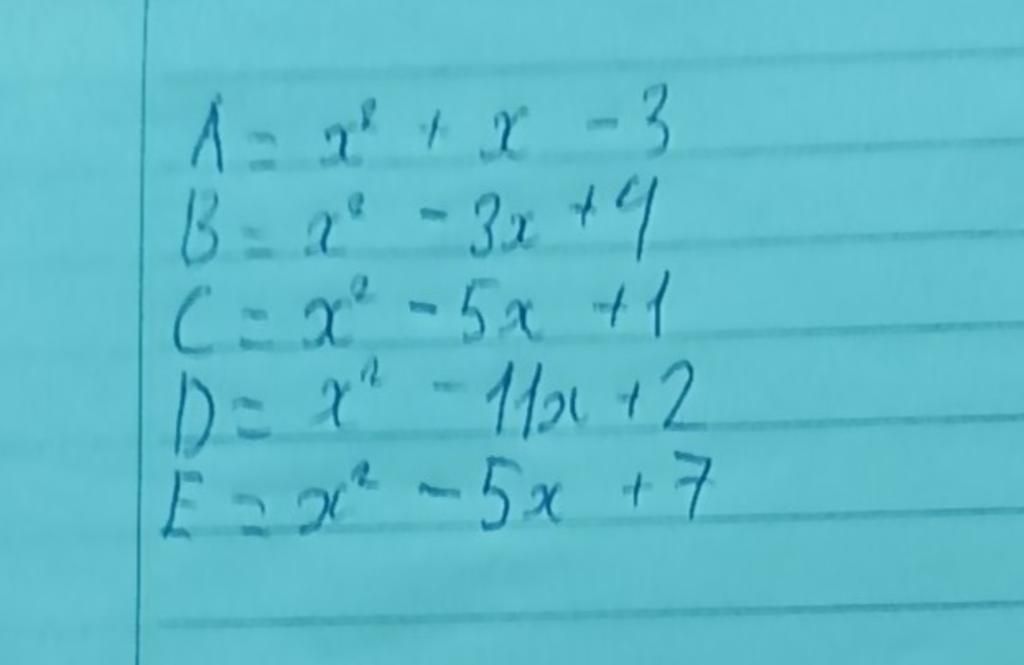 A = x² + x - 3
B = x² - 3x + 4
C = x² - 5x + 1
D = x² - 11x + 2
E = x² - 5x + 7